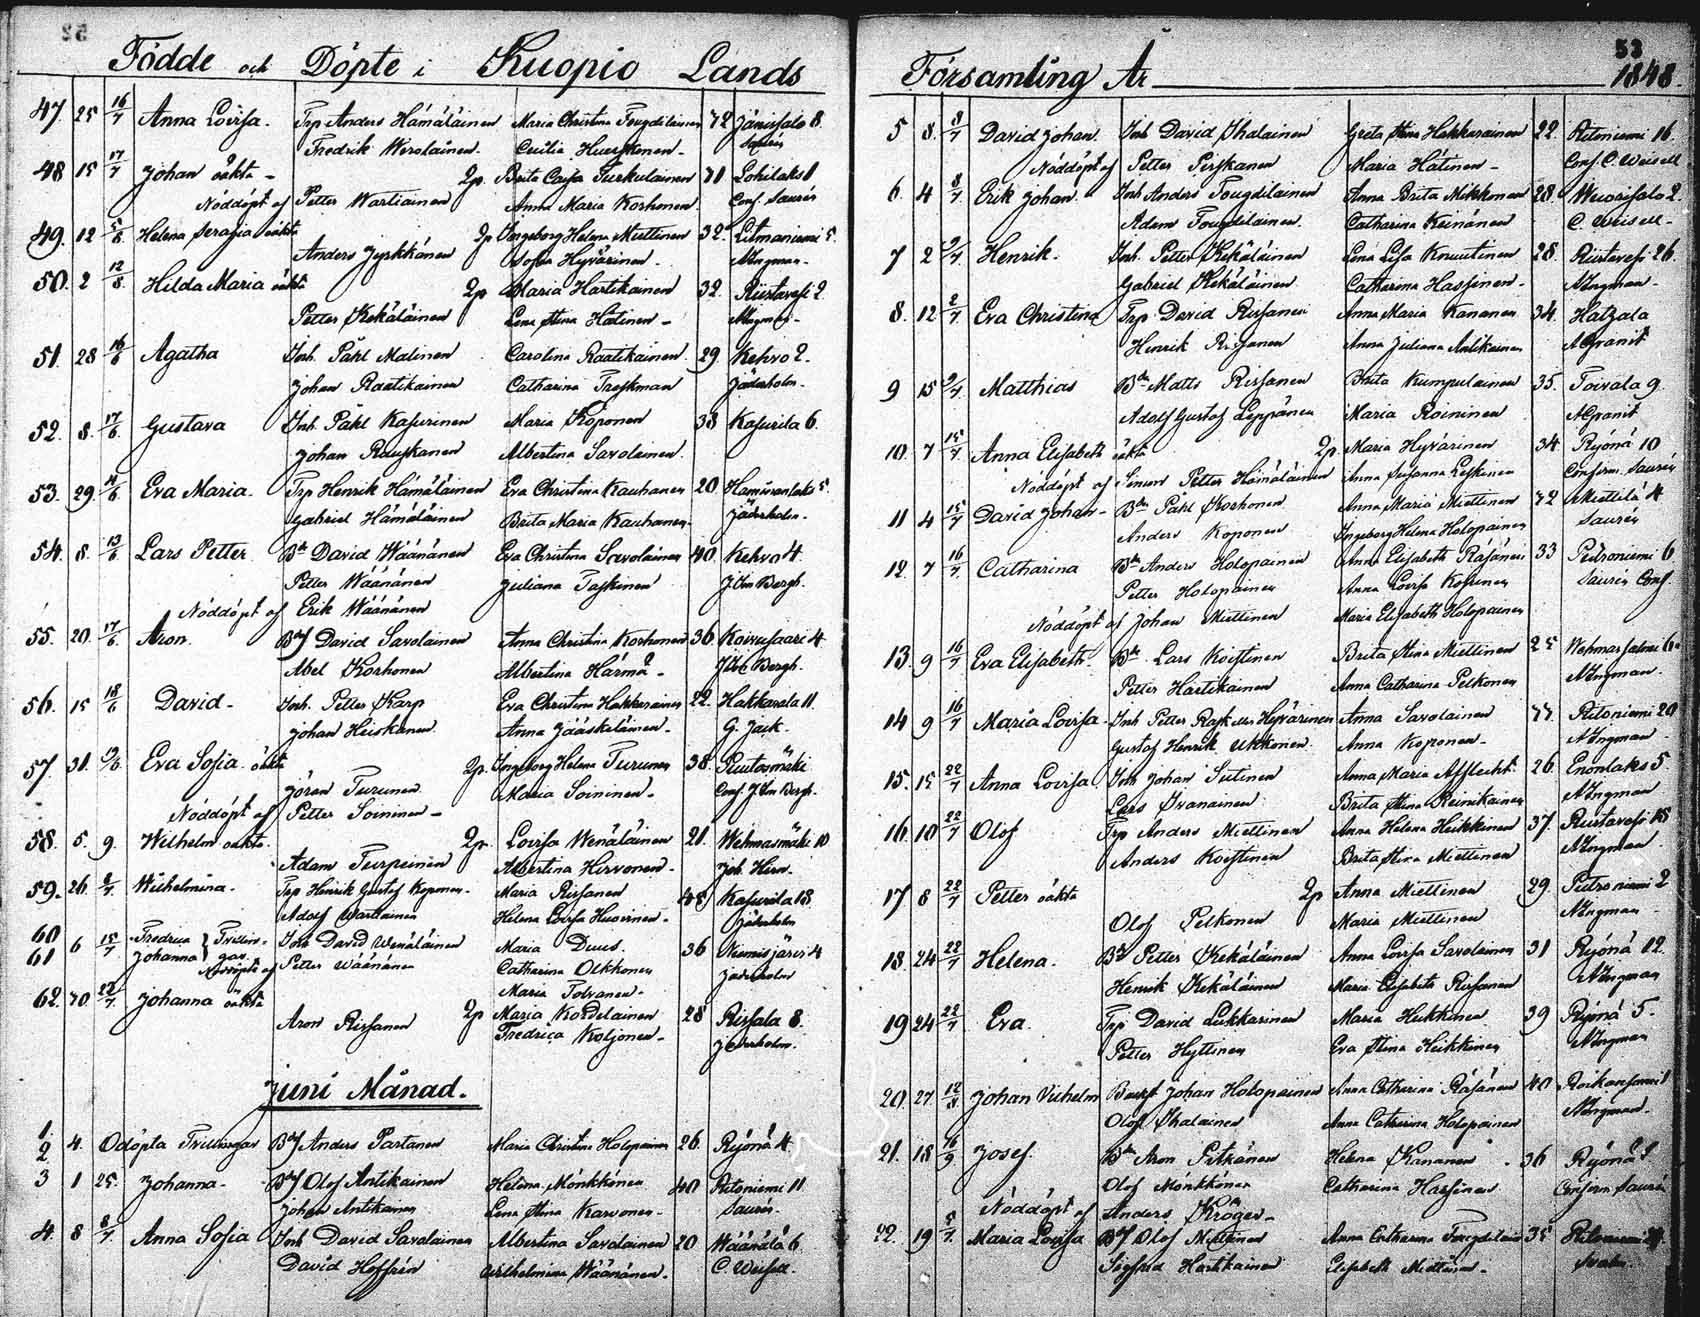 52
Födde och Döpte i Kuopio Lands
47. 25 16/7 Anna Lovisa. Trp Anders Hämäläinen Maria Christina Tougdilainen 72 Jänissalo 8.
Fredrik Wirolainen Cecilia
48 15 17/7 Johan oäkta - 2p. Brita Caisa Turkulainen 71 Lohilaks 1
Nöddöpt af Petter Wartiainen Anna Maria Korhonen Conf. Saurén
49. 12 5/8 Helena Serafia oäkta 2p Ingeborg Helena Miettinen 32. Litmaniemi 5.
Anders Jyrkkänen Sofia Hyvärinen. AIngman.
50. 2 12/8 Hilda Maria oäkta 2p Maria Hartikainen 32. Riistavesi 2.
Petter Kekäläinen Lena Stina Hatinen - AIngman
51. 28 16/6 Agatha Inh. Påhl Malinen Carolina Raatikainen 29 Kehvo 2.
Johan Raatikainen Catharina Treskman Jäderholm.
52. 8. 17/6 Gustava Inh. Påhl Kasurinen Maria Koponen 38 Kasurila 6.
Johan Rauskanen Albertina Savolainen.
53. 29. Eva Maria. Trp Henrik Hämäläinen Eva Christina Kauhanen 20 5.
Gabriel Hämäläinen Brita Maria Kauhanen Jäderholm.
54. 8. 13/6 Lars Petter Bd David Wäänänen Eva Christina Savolainen 40. Kehvo 4
Petter Wäänänen Juliana Taskinen J. Um Bergh.
Nöddöpt af Erik Wäänänen
55. 20. 17/6 Aron. Bdf David Savolainen Anna Christina Korhonen 36 Koivusaari 4
Abel Korhonen Albertina Härmä Bergh.
56. 15 18/6 David - Inh. Petter Karp Eva Christina Hakkarainen 22. Hakkarala 11.
Johan Heiskanen Anna Jääskeläinen - G. Jack.
57. 31. Eva Sofia oäkta 2p. Ingeborg Helena Turunen 38.
Jöran Turunen Maria Soininen. Conf. Bergh.
Nöddöpt af Petter Soininen -
58. 5. 9. Wilhelm oäkta. 2p. Lovisa Wenäläinen 21. Wehmasmäki 10
Adam Turpeinen Albertina Hirvonen. Joh. Hirn.
59. 26. 8/7 Wilhelmina. Trp Henrik Gustaf Koponen Maria Rissanen Kasurila 18
Adolf Wartiainen Helena Lovisa Huovinen - Jäderholm
60 Fredrica } Trillin-
61 6 15/7 Johanna } gar Inh David Wenäläinen Maria 36 4
Nöddöpte af Petter Wäänänen Catharina Olkkonen Jäderholm
Maria Tolvanen -
62. 30 22/7 Johanna oäkta 2p Maria 28 Rissala 8.
Aron Rissanen Fredrica Koljonen - Jäderholm.
Juni Månad.
1.
2. 4. Odöpta Tvillingar Bdf Anders Partanen Maria Christina Holopainen 26. Ryönä 4.
3 1 25. Johanna - Bdf Olof Antikainen Helena Mönkkönen 40 Ritoniemi 11
Johan Antikainen Lena Stina Karvonen - Saurén.
4. 8 8/7 Anna Sofia Inh David Savolainen Albertina Savolainen 20 Wäänälä 6
David Hoffrén Wilhelmina Wäänänen. C. Weisell.
53
Församling År 1848.
5 8. 8/7 David Johan. Inh David Ihalainen Greta Stina Hakkarainen 22. Ritoniemi 16.
Nöddöpt af Petter Pirskanen Maria Hätinen - Conf. C. Weisell
6. 4 8/7 Erik Johan. Inh Anders Tougdilainen Anna Brita Mikkonen 28. Wuorisalo 2.
Adam Tougdilainen. Catharina Keinänen C. Weisell -
7 2 9/7 Henrik. Inh. Petter Kekäläinen Lena Lisa Knuutinen 28. Riistavesi 26.
Gabriel Kekäläinen Catharina Hassinen. AIngman -
8. 12 2/7 Eva Christina Trp David Rissanen Anna Maria Kananen 34. Hatzala
Henrik Rissanen Anna Juliana Antikainen AGranit
9 15 9/7 Matthias Bdn Matts Rissanen Brita Kumpulainen 35. Toivala 9.
Adolf Gustaf Leppänen Maria Roininen AGranit
10. 7 15/7 Anna Elisabeth oäkta 2p Maria Hyvärinen 34 Ryönä 10
Nöddöpt af Simon Petter Hämäläinen Anna Susanna Leskinen Confirm. Saurén
11 4 15/7 David Johan - Bdn Påhl Korhonen Anna Maria Miettinen 72 Miettilä 4
Anders Koponen Ingeborg Helena Holopainen Saurén
12. 7 16/7 Catharina Bdn Anders Holopainen Anna Elisabeth Räsänen 33 Petroniemi 6
Petter Holopainen Anna Lovisa Saurén Conf.
Nöddöpt af Johan Miettinen Maria Elisabeth Holopainen
13. 9 16/7 Eva Elisabeth. Bdn Lars Koistinen Brita Stina Miettinen 25 Wehmassalmi 6
Petter Hartikainen Anna Catharina Pelkonen AIngman.
14 9 16/7 Maria Lovisa. Inh Petter Hyvärinen Anna Savolainen Ritoniemi 20
Gustaf Henrik Ukkonen Anna Koponen - AIngman.
15. 15 22/7 Anna Lovisa Inh Johan Sutinen Anna Maria Afflecht 26. Enonlaks 5
Lars Ivanainen Brita Stina Reinikainen AIngman
16. 10 22/7 Olof Trp Anders Miettinen Anna Helena Heikkinen 37. Riistavesi 15
Anders Koistinen Brita Stina Miettinen AIngman.
17 8 22/7 Petter oäkta 2p Anna Miettinen 29. Petroniemi 2
Olof Pelkonen Maria Miettinen AIngman
18. 24 22/7 Helena. Bdn Petter Kekäläinen Anna Lovisa Savolainen 31 Ryönä 12.
Henrik Kekäläinen Maria Elisabeth Rissanen AIngman
19 24 22/7 Eva. Trp David Lukkarinen Maria Heikkinen 39 Ryönä 5.
Petter Hyttinen Eva Stina Heikkinen AIngman
20. 27. 12/8 Johan Vilhelm Johan Holopainen Anna Catharina Räsänen 40 1
Olof Ihalainen Anna Catharina Holopainen AIngman.
21. 18 16/9 Josef. Bdn Aron Pitkänen Helena Kananen. 36 Ryönä 9
Olof Mönkkönen Catharina Hassinen Confirm. Saurén
Nöddöpt af Anders Kröger -
22. 19 5/7 Maria Lovisa Bdf Olof Miettinen Anna Catharina Tougdilain 35 Ritoniemi
Sigfrid Hartikainen Elisabeth Miettinen -